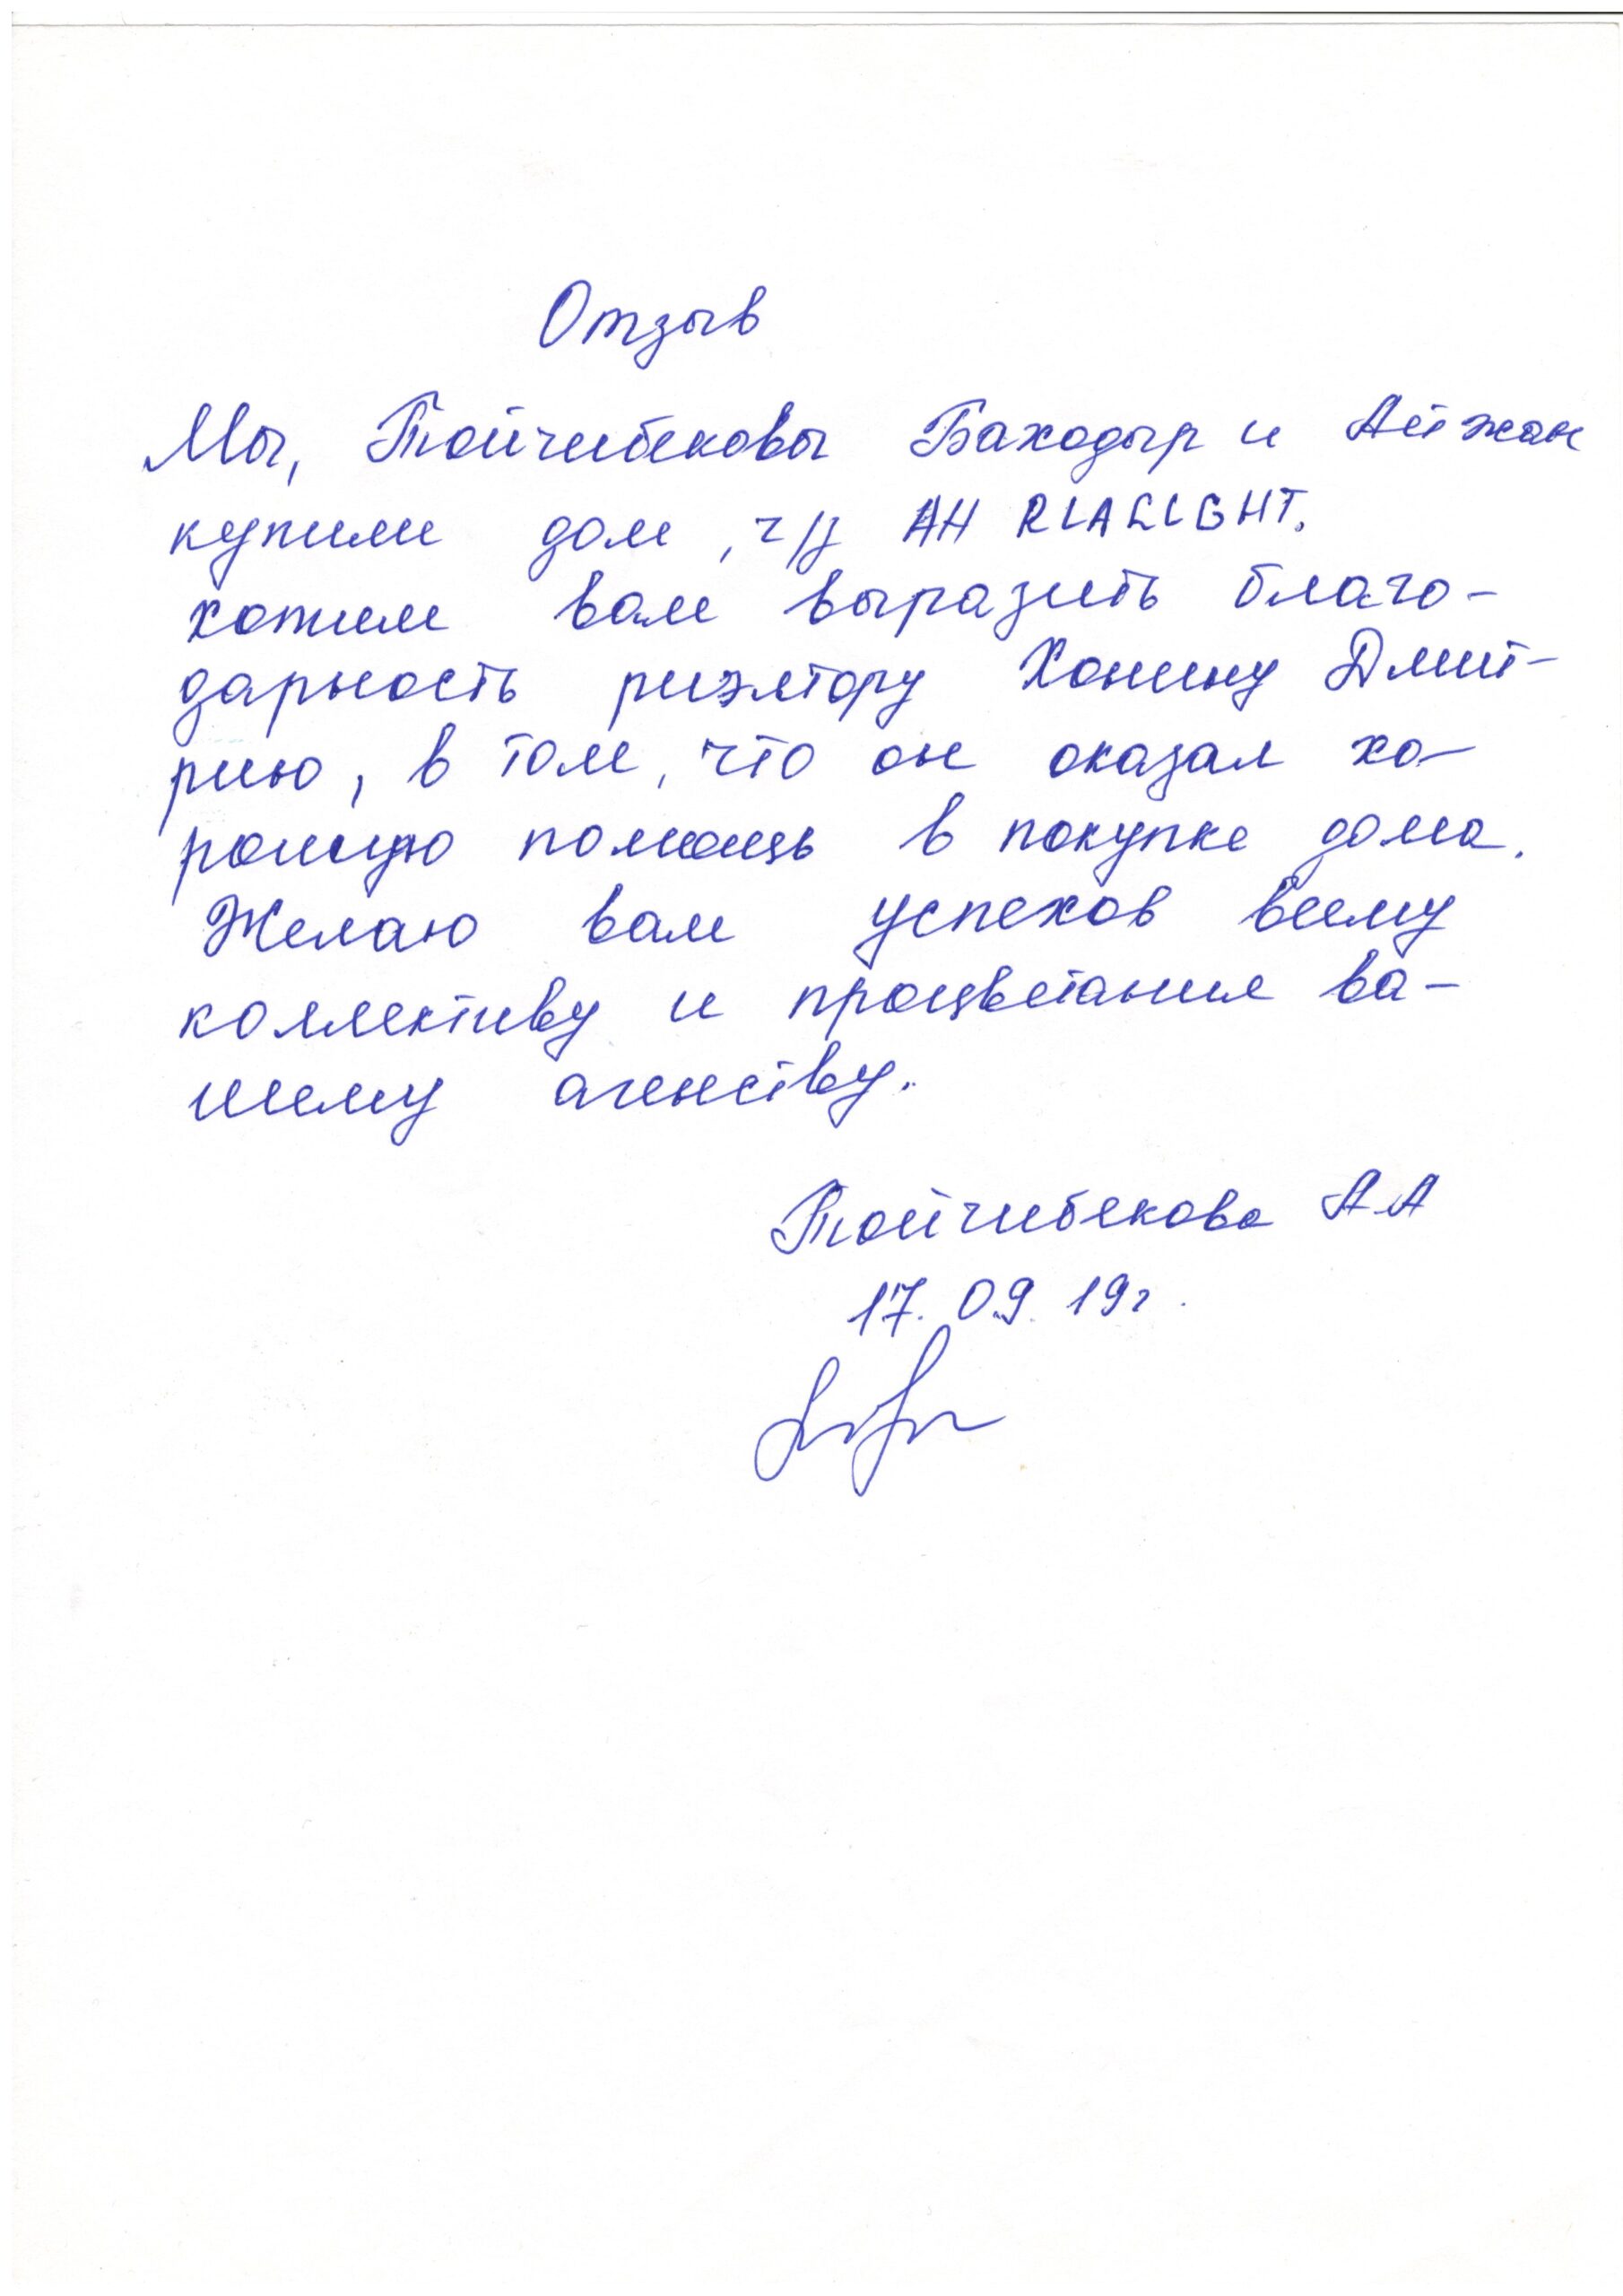 Отзыв
Мы, Тойчибековы Баходыр и Айжан
купили дом, ч/з АН RIALIGHT.
хотим вам выразить благо-
дарность риэлтору Хонину Дмит-
рию, в том, что он оказал хо-
рошую помощь в покупке дома.
Желаю вам успехов всему
коллективу и процветания ва-
шему агенству.
Тойчибекова А.А
17.09.19г.